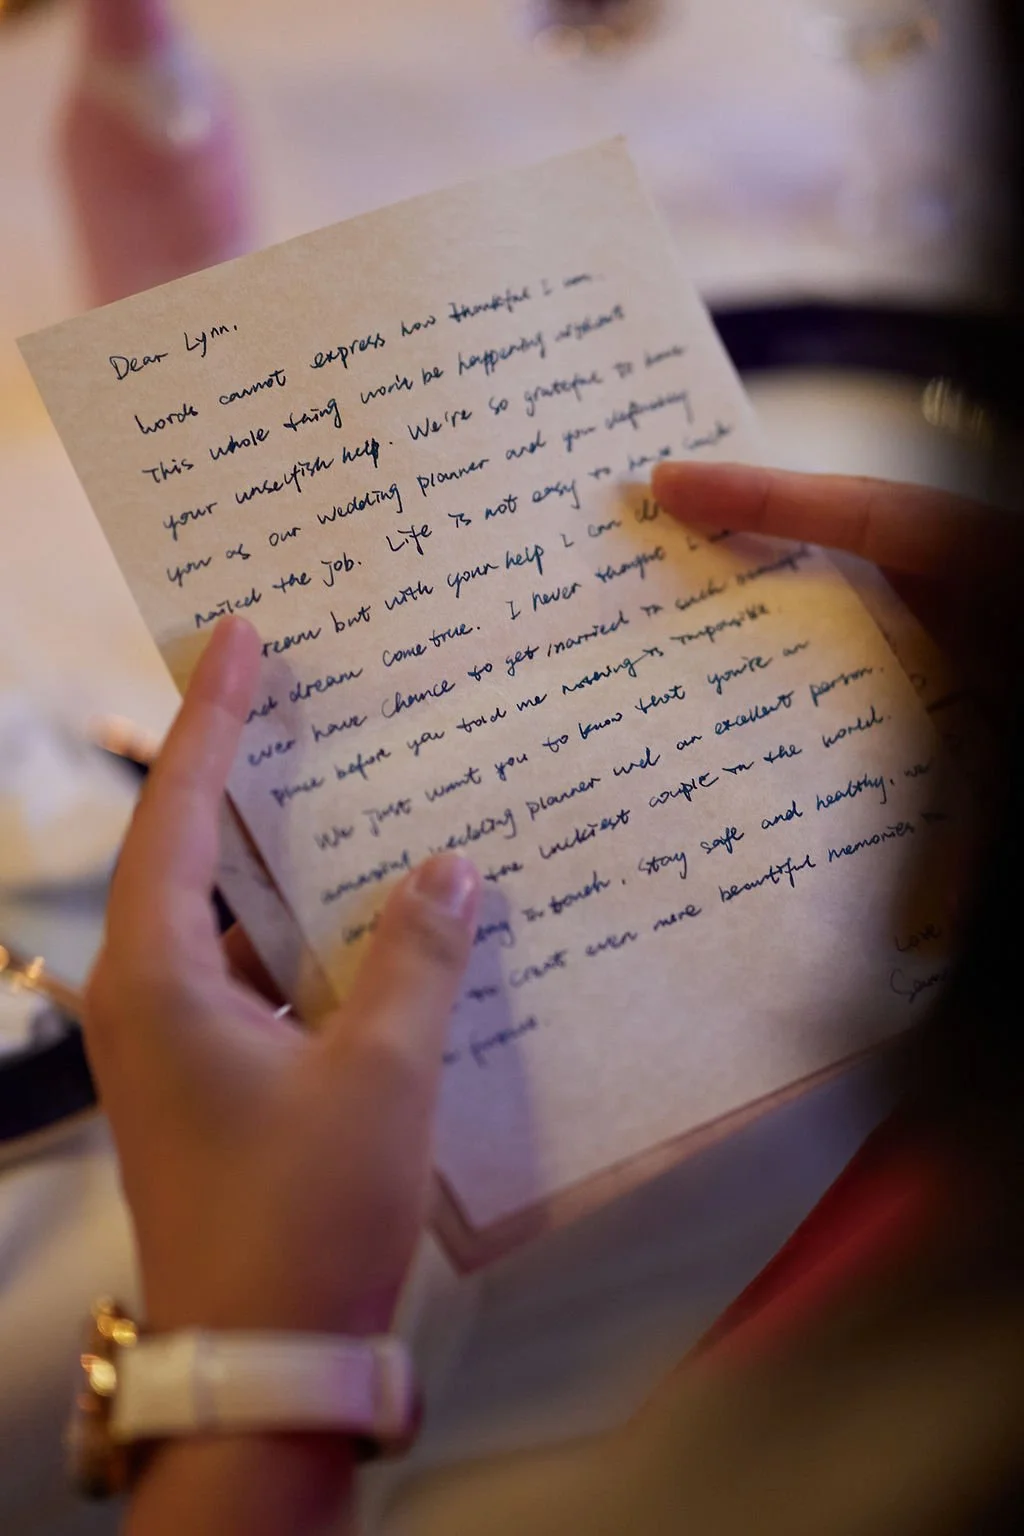 Dear Lynn,
words cannot express how thankful I am.
This whole thing won't be happening without
your unselfish help. We're so grateful to have
you as our wedding planner and you definitely
nailed the job. Life is not easy to have such
dream but with your help I can
dream come true. I never thought I
ever have chance to get married in such
place before you told me nothing is impossible.
We just want you to know that you're an
amazing wedding planner and an excellent person.
the luckiest couple in the world.
in touch. Stay safe and healthy, we
to create even more beautiful memories in
future.
Love